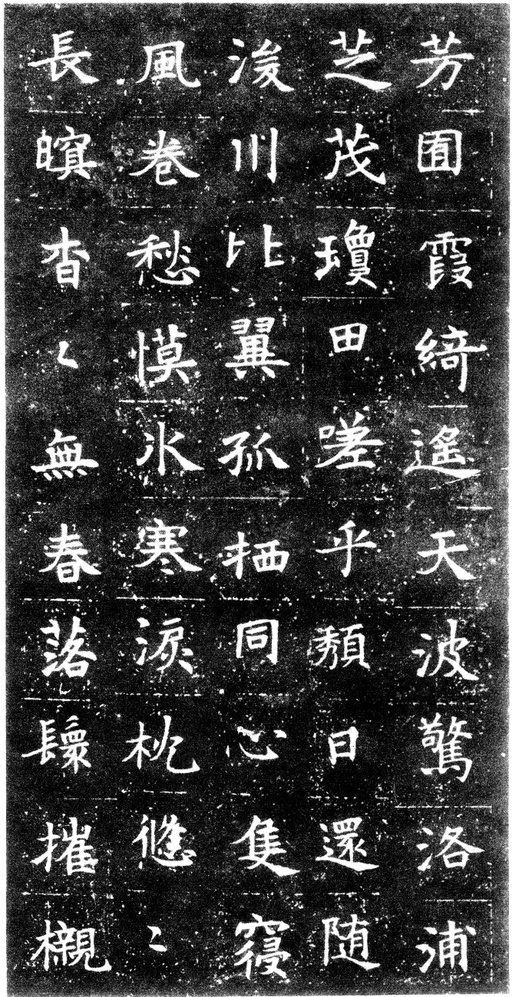 芳囿霞綺遙天波驚洛浦
芝茂瓊田嗟乎頹日還随
浚川比翼孤栖同心隻寑
風卷愁慏氷寒淚枕悠〻
長暝杳〻無春落鬟摧櫬